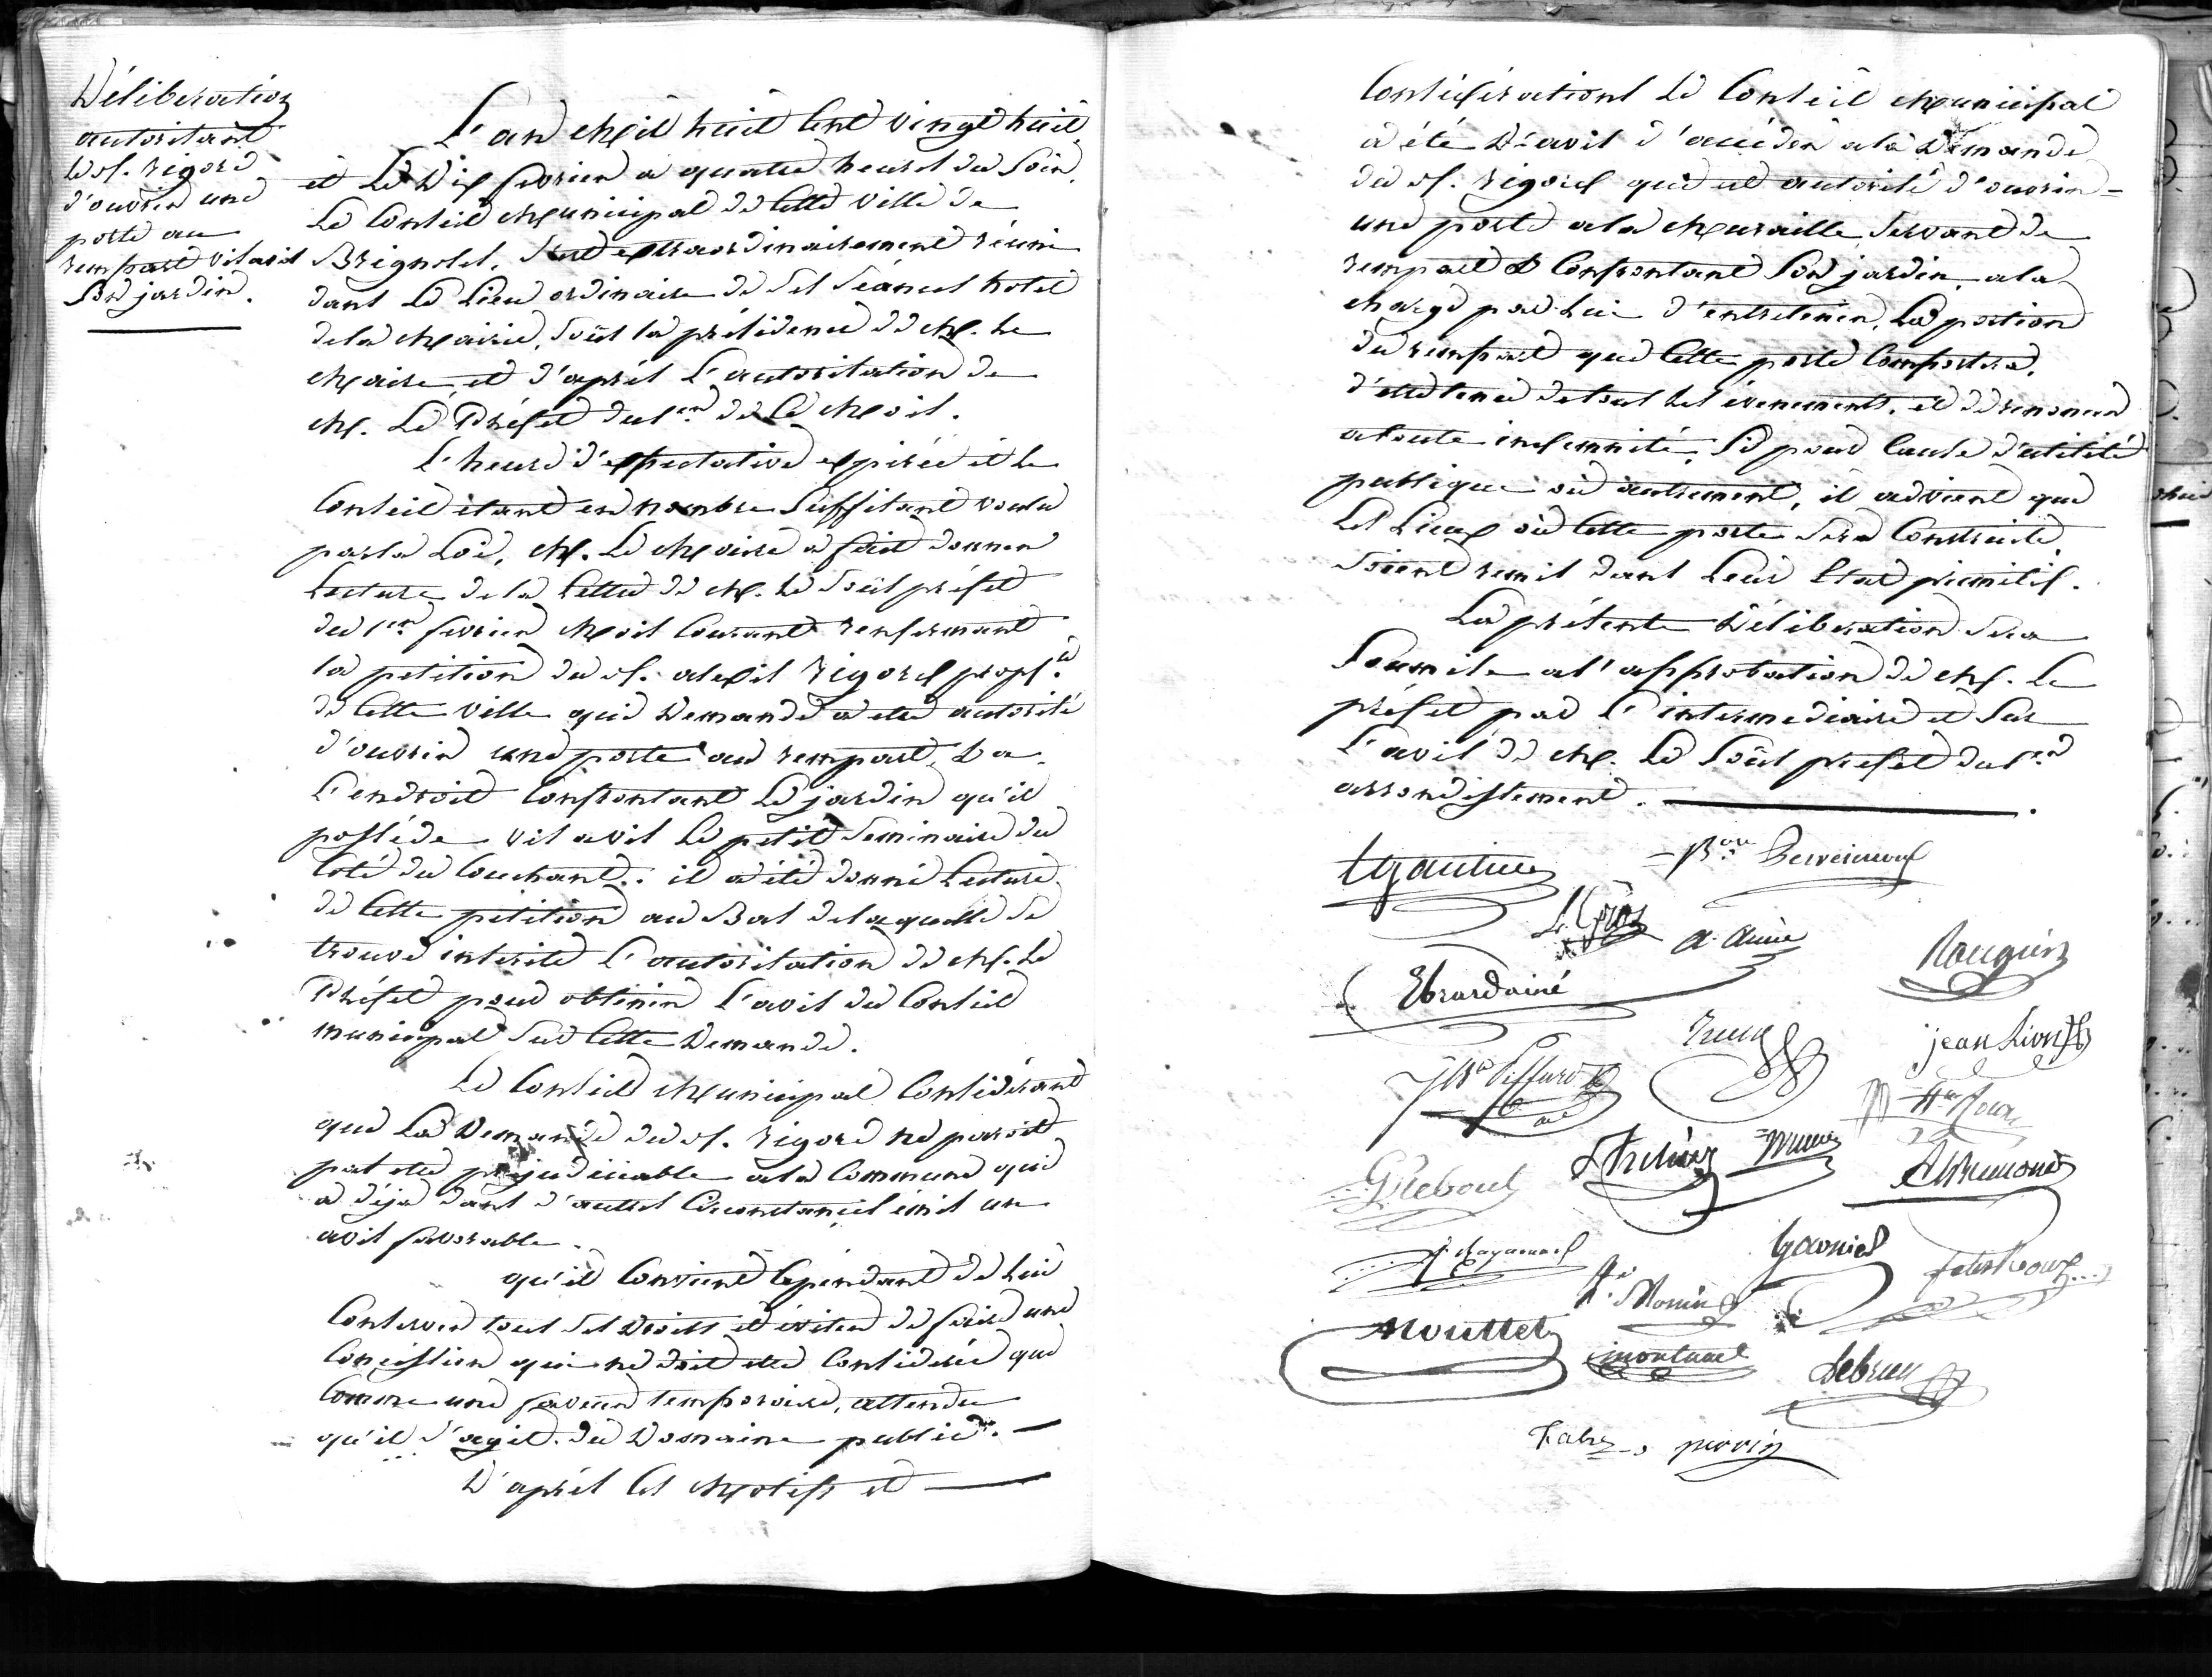 Déliberation
autorisant
le sr. rigord
d'ouvrir une
porte au
rempart vis avis
Son jardin.
L'an Mil huit Cent vingt huit
et Le Dix fevrier a quatre heures du Soir.
Le Conseil Municipal de Cette Ville de
Brignoles, S'est extraordinairement réuni
dans Le Lieu ordinaire de Ses Séances hotel
dela Mairie, Sous la présidence de M. Le
Maire et d'après L'autorisation de
M. Le Préfet du 1er de Ce Mois.
L'heure d'expectative expirée et Le
Conseil étant en nombre Suffisant voulu
par la Loi, M. Le Maire a fait donner
Lecture de la Lettre de M. Le Sous préfet
du 1er fevrier Mois Courant renfermant
la petition du sr. alexis rigord propre.
de Cette Ville qui Demande a etre autorisé
d'ouvrir une porte au rempart, a
L'endroit Confrontant Le jardin qu'il
possède vis avis Le petit Seminaire du
Coté du Couchant.. il a été donné Lecture
de Cette petition au Bas de laquelle Se
trouve inserité L'autorisation de M. Le
Préfet pour obtenir L'avis du Conseil
municipal Sur Cette Demande.
Le Conseil Municipal Considérant
que La Demande du sr. rigord ne paroit
pas etre prejudiciable ala Commune qui
a déja dans d'autres Circonstances émis un
avis favorable.
qu'il Convient Cependant de Lui
Conserver tous Ses Droits et éviter de faire une
Concession qui ne doit etre Considérée que
Comme une faveur temporaire, attendu
qu'il S'agit du Domaine public. —
D'après Ces Motifs et —
Considérations Le Conseil Municipal
a été D'avis d'accéder ala Demande
du sr. rigord qui est autorisé d'ouvrir =
une porte ala Muraille Servant de
rempart & Confrontant Son jardin, ala
charge par Lui d'entretenir, La portion
du rempart que Cette porte Comportera,
d'etre tenu de tous Les évenements, et de renoncer
atoute indemnité, Si pour Cause d'utilité
publique où autrement, il advient que
Les Lieux où Cette porte Sera Construite
Soient remis dans Leur Etat primitif.
La présente Déliberation Sera
Soumise al'approbation de M. Le
préfet par L'intermediaire et Sur
L'avis de M. Le Sous préfet du 1er
arrondissement.
Lgautier
L. Gros
a. aine
Ebrard ainé
Rouguier
jean Lion
Greboul
Garnier
felix Roux
Mouttet
Fe. Monin
montaud
Lebrun
Fabre
perrin